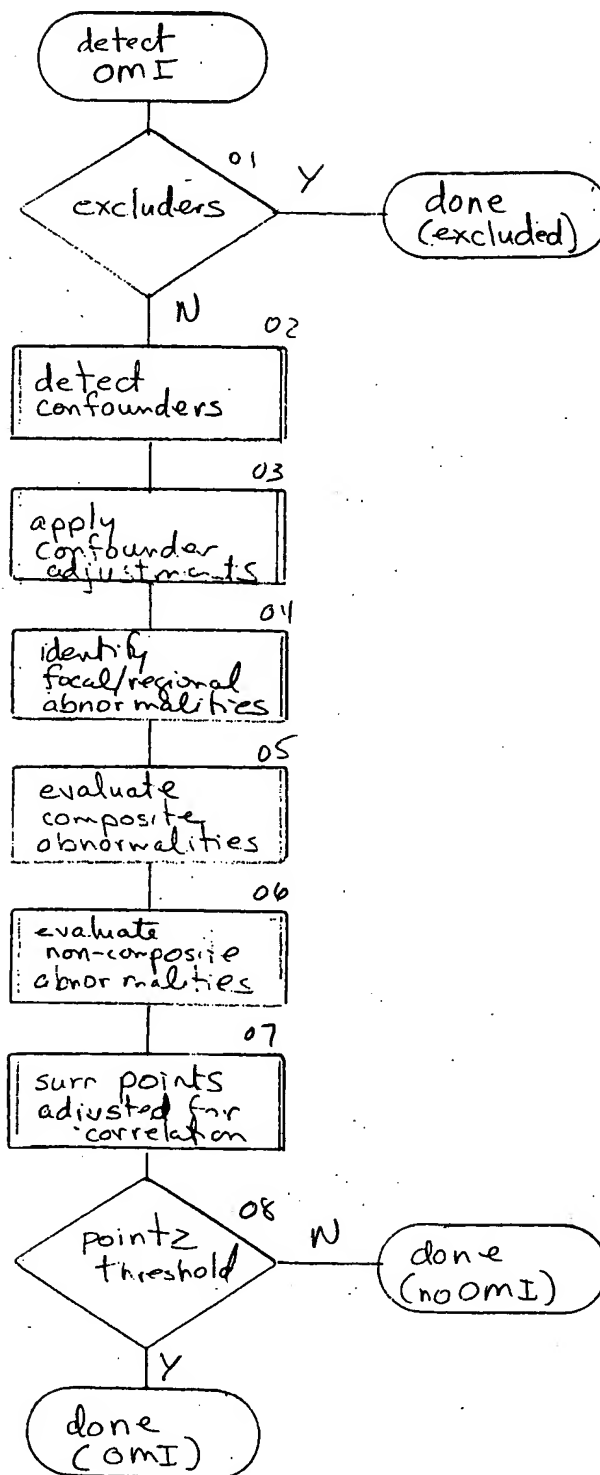 detect
OMI
01
Y
excluders
done
(excluded)
N
02
detect
confounders
03
apply
confounder
adjustments
04
identify
focal/regional
abnormalities
05
evaluate
composite
abnormalities
06
evaluate
non-composite
abnormalities
07
sum points
adjusted for
correlation
08
point≥
threshold
N
done
(no OMI)
Y
done
(OMI)